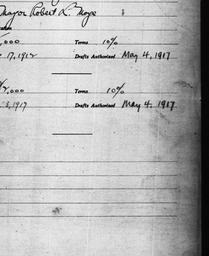 Mayor Robert L. Moye
,000 Terms 10%
17, 1912 Drafts Authorized May 4, 1917
,000 10%
, 1917 Drafts Authorized May 4, 1917